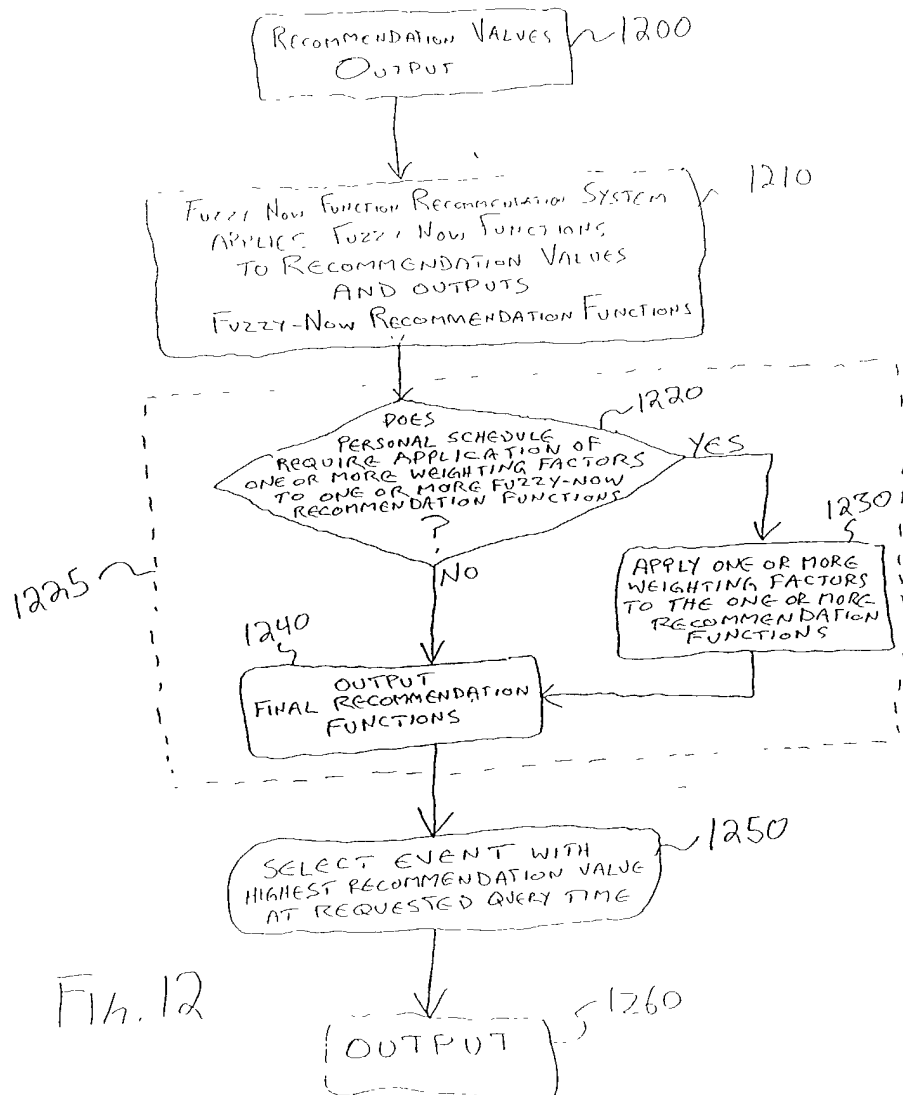 RECOMMENDATION VALUES
OUTPUT
1200
FUZZY NOW FUNCTION RECOMMENDATION SYSTEM
APPLIES FUZZY NOW FUNCTIONS
TO RECOMMENDATION VALUES
AND OUTPUTS
FUZZY-NOW RECOMMENDATION FUNCTIONS
1210
DOES
PERSONAL SCHEDULE
REQUIRE APPLICATION OF
ONE OR MORE WEIGHTING FACTORS
TO ONE OR MORE FUZZY-NOW
RECOMMENDATION FUNCTIONS
?
1220
YES
NO
1225
1230
APPLY ONE OR MORE
WEIGHTING FACTORS
TO THE ONE OR MORE
RECOMMENDATION
FUNCTIONS
1240
OUTPUT
FINAL RECOMMENDATION
FUNCTIONS
SELECT EVENT WITH
HIGHEST RECOMMENDATION VALUE
AT REQUESTED QUERY TIME
1250
FIG. 12
OUTPUT
1260